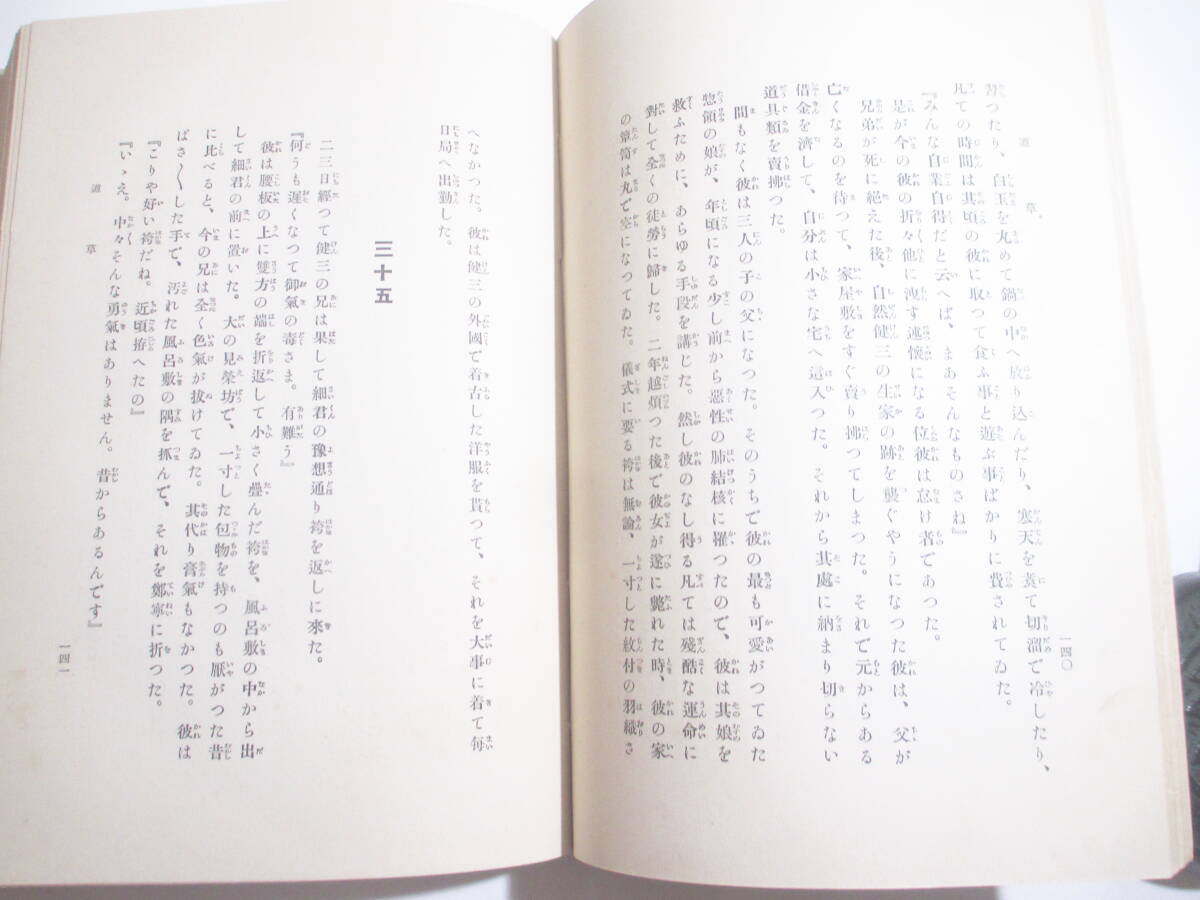 道草
一四〇
習つたり、白玉を丸めて鍋の中へ放り込んだり、寒天を煮て切溜で冷したり、
凡ての時間は其頃の彼に取つて食ふ事と遊ぶ事ばかりに費されてゐた。
『みんな自業自得だと云へば、まあそんなものさね』
是が今の彼の折々他に洩す述懷になる位彼は怠け者であつた。
兄弟が死に絶えた後、自然健三の生家の跡を襲ぐやうになつた彼は、父が
亡くなるのを待つて、家屋敷をすぐ賣り拂つてしまつた。それで元からある
借金を濟して、自分は小さな宅へ這入つた。それから其處に納まり切らない
道具類を賣拂つた。
間もなく彼は三人の子の父になつた。そのうちで彼の最も可愛がつてゐた
惣領の娘が、年頃になる少し前から惡性の肺結核に罹つたので、彼は其娘を
救ふために、あらゆる手段を講じた。然し彼のなし得る凡ては殘酷な運命に
對して全くの徒勞に歸した。二年越煩つた後で彼女が遂に斃れた時、彼の家
の簞笥は丸で空になつてゐた。儀式に要る袴は無論、一寸した紋付の羽織さ
へなかつた。彼は健三の外國で着古した洋服を貰つて、それを大事に着て每
日局へ出勤した。
三十五
二三日經つて健三の兄は果して細君の豫想通り袴を返しに來た。
『何うも遲くなつて御氣の毒さま。有難う』
彼は腰板の上に雙方の端を折返して小さく疊んだ袴を、風呂敷の中から出
して細君の前に置いた。大の見榮坊で、一寸した包物を持つのも厭がつた昔
に比べると、今の兄は全く色氣が拔けてゐた。其代り膏氣もなかつた。彼は
ぱさ〳〵した手で、汚れた風呂敷の隅を抓んで、それを鄭寧に折つた。
『こりや好い袴だね。近頃拵へたの』
『いゝえ。中々そんな勇氣はありません。昔からあるんです』
道草
一四一